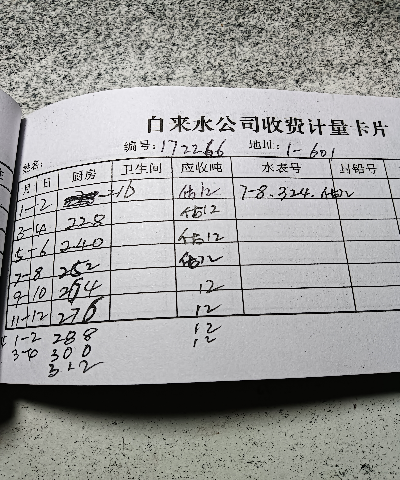 自来水公司收费计量卡片
编号:172266 地址:1-601
姓名:
月 日 厨房 卫生间 应收吨 水表号 封铅号
1-2 210 估12 7-8.324.估12
3-4 228 估12
5-6 240 估12
7-8 252 估12
9-10 264 12
11-12 276 12
1-2 288 12
3-4 300 12
312